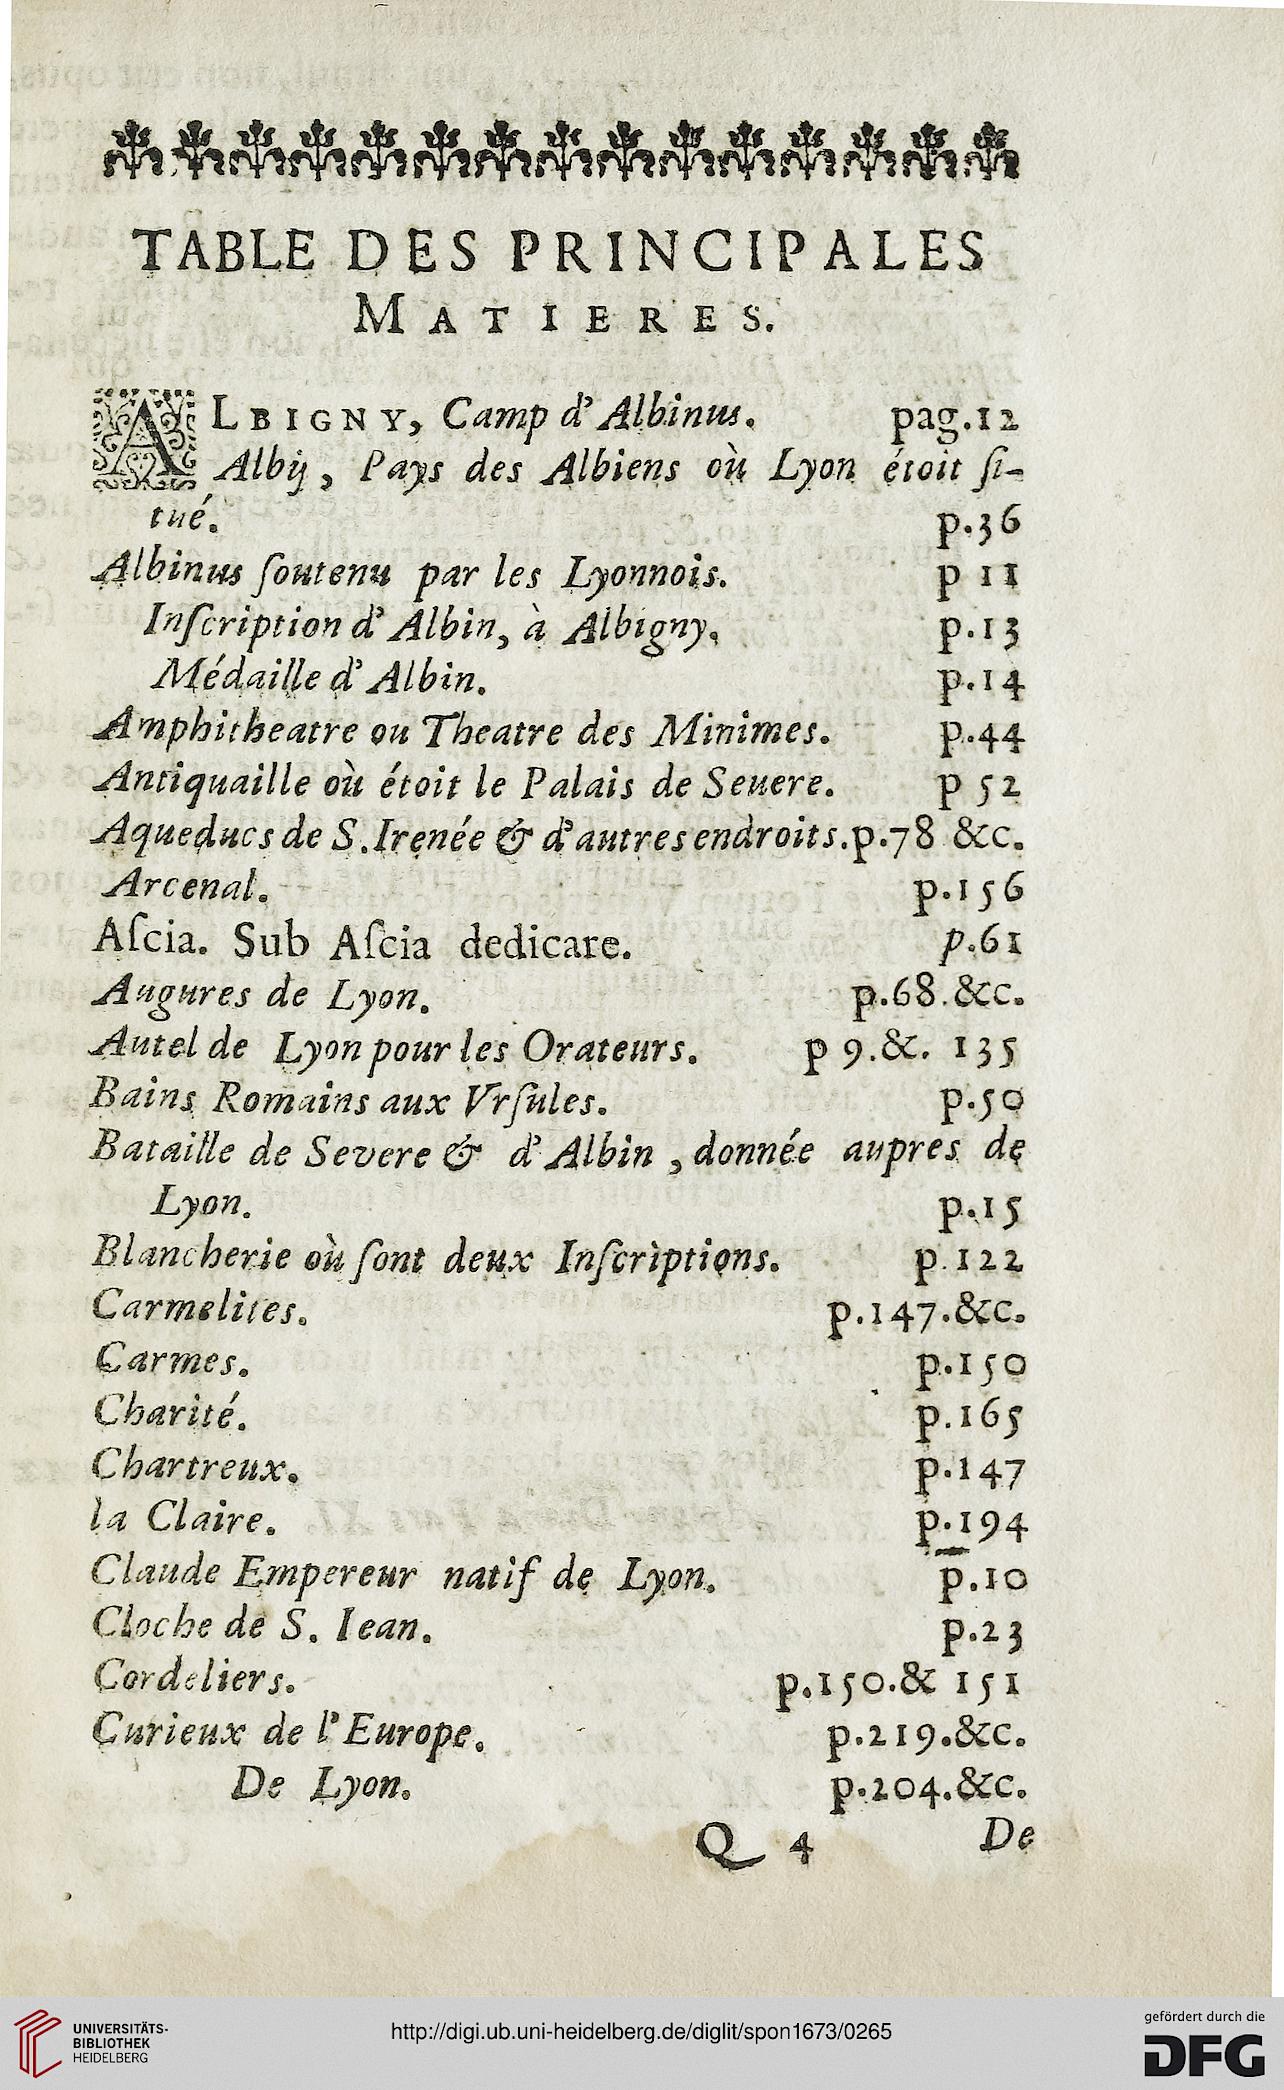 TABLE DES PRINCIPALES
MATIERES.
ALBIGNY, Camp d'Albinus. pag.12
Albij, Pays des Albiens où Lyon étoit ſi-
tué. p.36
Albinus ſoutenu par les Lyonnois. p 11
Inſcription d'Albin, à Albigny. p.13
Médaille d'Albin. p.14
Amphitheatre ou Theatre des Minimes. p.44
Antiquaille où étoit le Palais de Seuere. p 52
Aqueducs de S.Irenée & d'autres endroits.p.78 &c.
Arcenal. p.156
Aſcia. Sub Aſcia dedicare. p.61
Augures de Lyon. p.68.&c.
Autel de Lyon pour les Orateurs. p 9.&. 135
Bains Romains aux Vrſules. p.50
Bataille de Severe & d'Albin, donnée aupres de
Lyon. p.15
Blancherie où ſont deux Inſcrìptions. p.122
Carmelites. p.147.&c.
Carmes. p.150
Charité. p.165
Chartreux. p.147
la Claire. p.194
Claude Empereur natif de Lyon. p.10
Cloche de S. Iean. p.23
Cordeliers. p.150.& 151
Curieux de l'Europe. p.219.&c.
De Lyon. p.204.&c.
Q 4 De
UNIVERSITÄTS-
BIBLIOTHEK
HEIDELBERG
http://digi.ub.uni-heidelberg.de/diglit/spon1673/0265
gefördert durch die
DFG